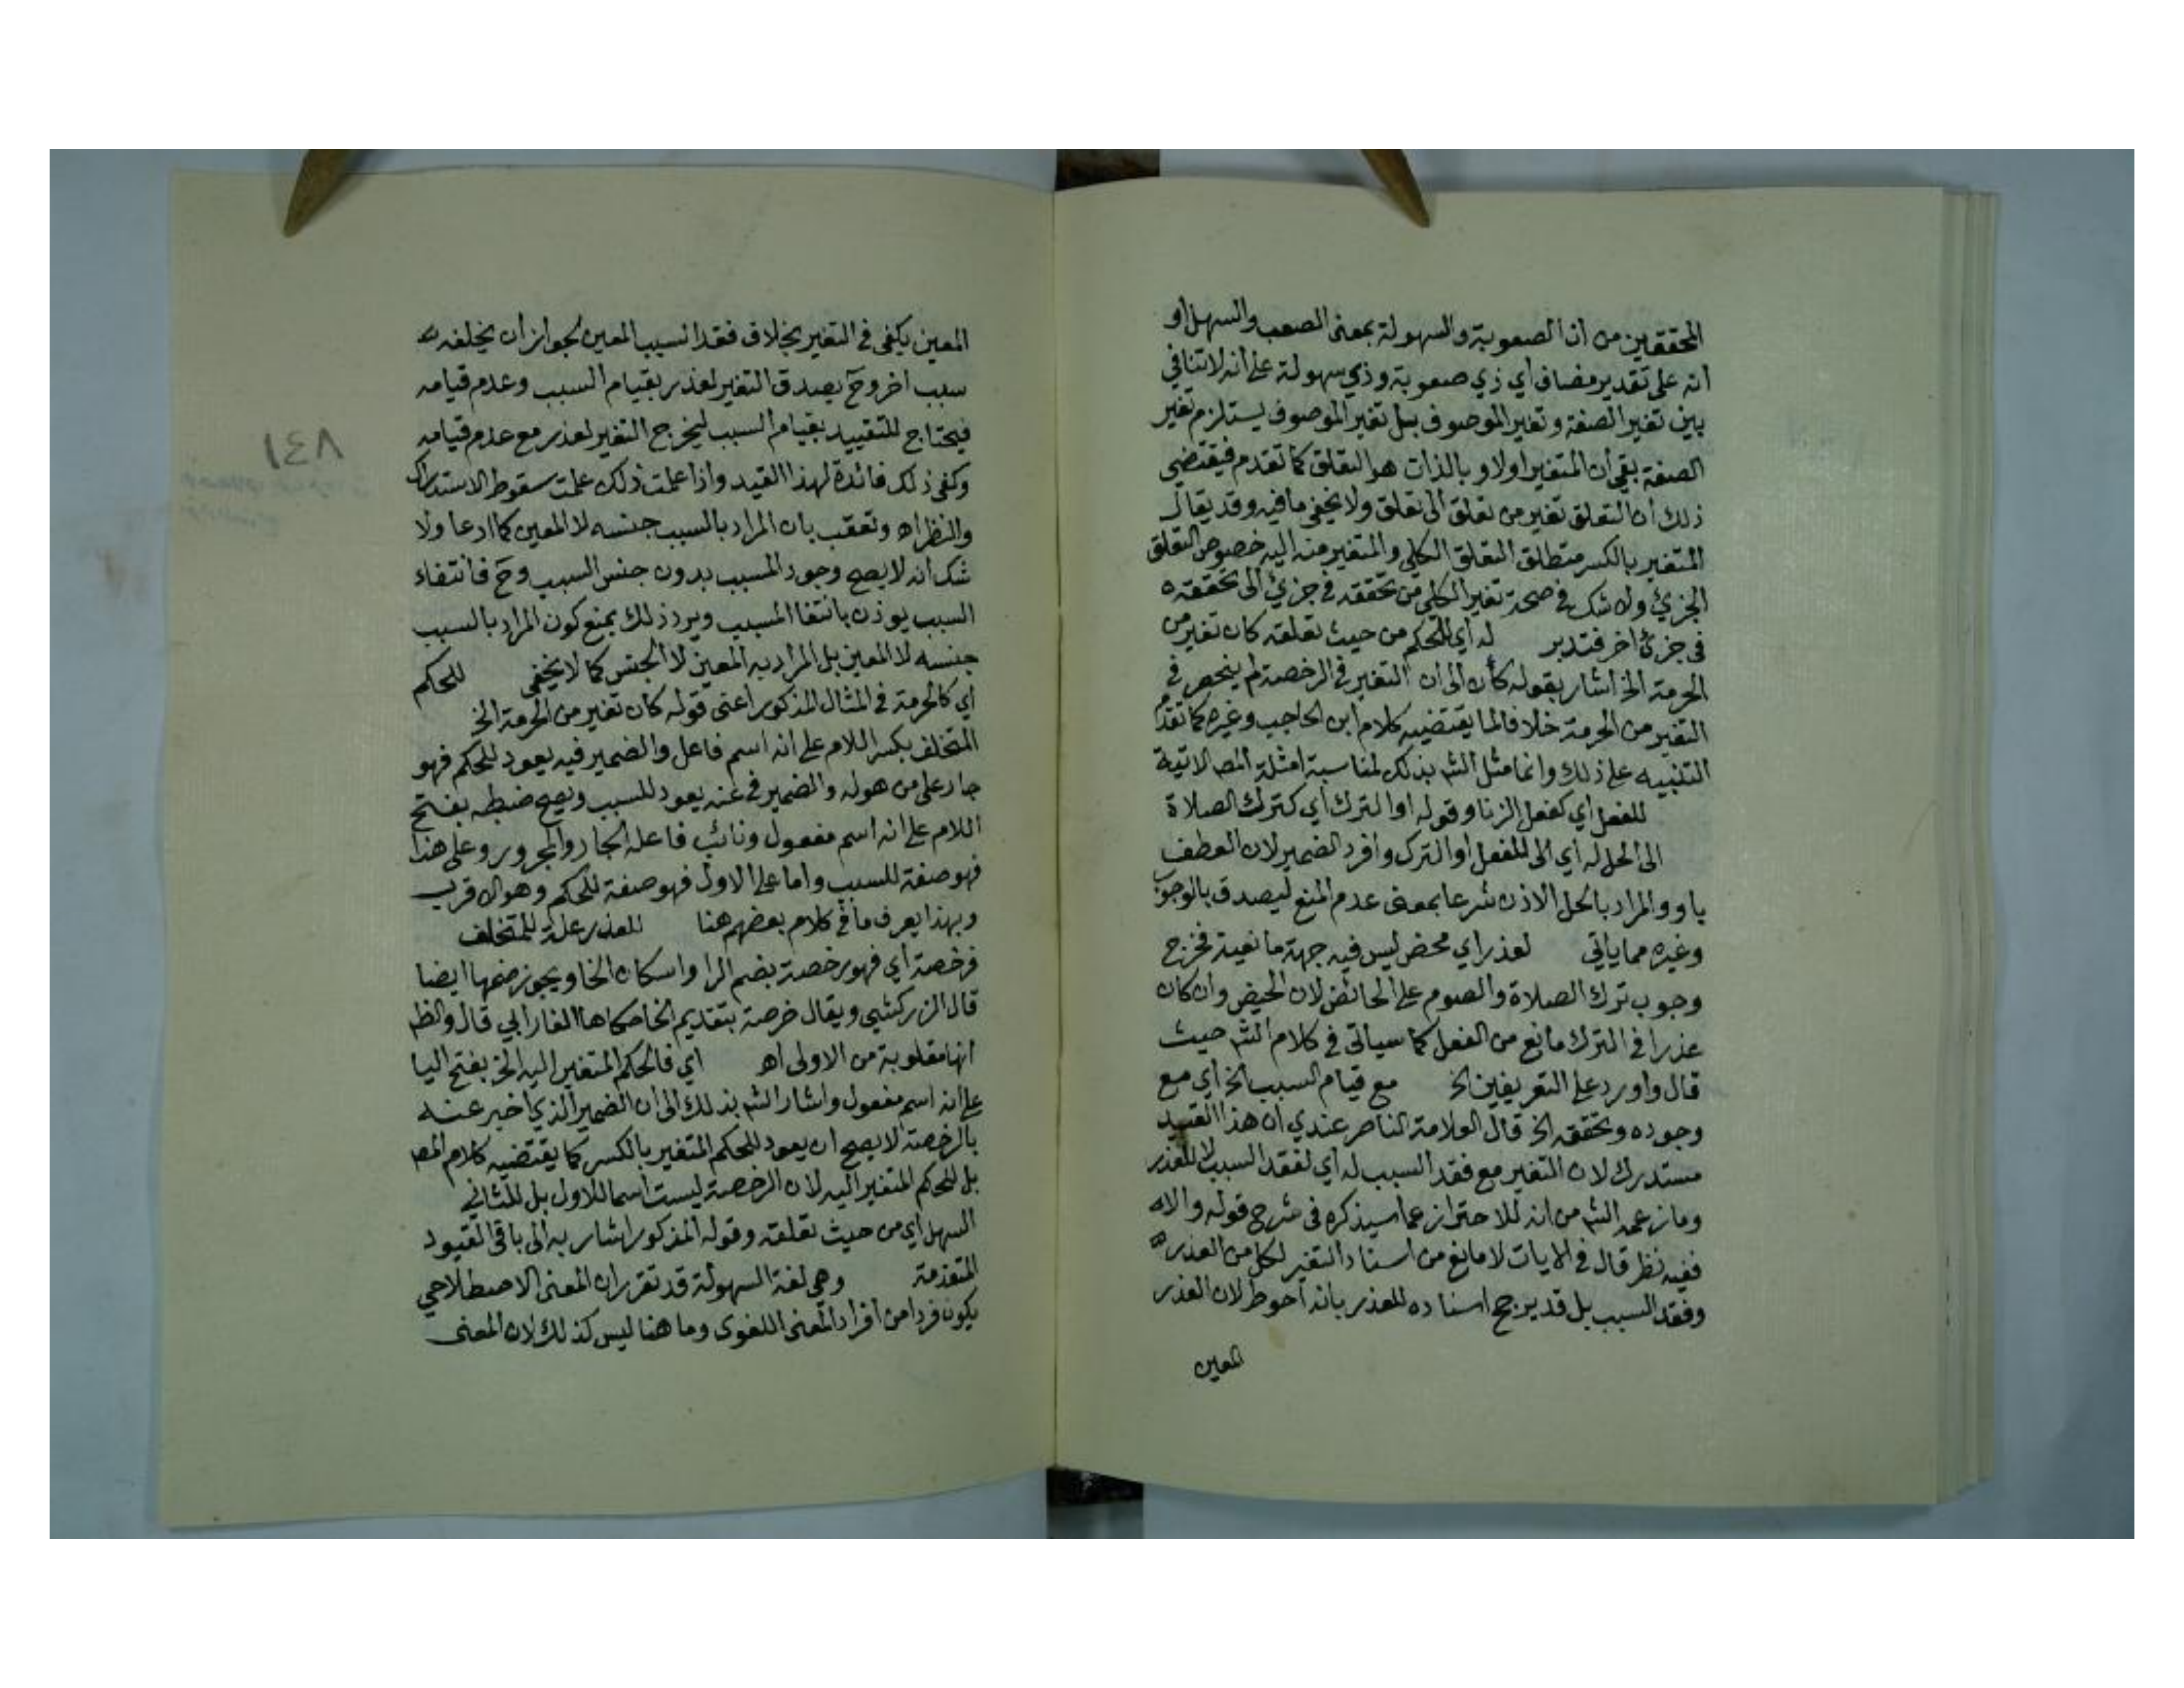 المحققين من ان الصعوبة والسهولة بمعنى الصعب والسهل او
انه على تقدير مضاف اي ذي صعوبة وذي سهولة على انه لا تنافي
بين تغير الصفة وتغير الموصوف بل تغير الموصوف يستلزم تغير
الصفة بقي ان المتغير اولا وبالذات هو التعلق كما تقدم فيقتضي
ذلك ان التعلق تغير من تعلق الى تعلق ولا يخفى ما فيه وقد يقال
المتغير بالكسر مطلق التعلق الكلي والمتغير منه اليه خصوص التعلق
الجزئي ولا شك في صحة تغير الكلي من تحققه في جزئي الى تحققه
في جزئ اخر فتدبر له اي للحكم من حيث تعلقه كان تغير من
الحرمة الخ اشار بقوله كأن الى ان التغير في الرخصة لم ينحصر في
التغير من الحرمة خلافا لما يقتضيه كلام ابن الحاجب وغيره كما تقدم
التنبيه على ذلك وانما مثل الشم بذلك لمناسبة امثلة المص الاتية
للفعل اي كفعل الزنا وقوله او الترك اي كترك الصلاة
الى الحل له اي الى للفعل او الترك وافرد الضمير لان العطف
باو والمراد بالحل الاذن شرعا بمعنى عدم المنع ليصدق بالوجوب
وغيره مما ياتي لعذر اي محض ليس فيه جهة مانعية فخرج
وجوب ترك الصلاة والصوم على الحائض لان الحيض وان كان
عذرا في الترك مانع من الفعل كما سياتي في كلام الشم حيث
قال واورد على التعريفين الخ مع قيام السبب الخ اي مع
وجوده وتحققه الخ قال العلامة الناصر عندي ان هذا القيد
مستدرك لان التغير مع فقد السبب له اي لفقد السبب لا للعذر
وما زعمه الشم من انه للاحتراز عما سيذكره في شرح قوله والا
ففيه نظر قال في الايات لا مانع من اسناد التغير لكل من العذر
وفقد السبب بل قد يرجح اسناده للعذر بانه احوط لان العذر
المعين
المعين يكفي في التغير بخلاف فقد السبب المعين لجواز ان يخلفه
سبب اخر وح يصدق التغير لعذر بقيام السبب وعدم قيامه
فيحتاج للتقييد بقيام السبب ليخرج التغير لعذر مع عدم قيامه
وكفى ذلك فائدة لهذا القيد واذا علمت ذلك علمت سقوط الاستدراك
والنظر اه وتعقب بان المراد بالسبب جنسه لا المعين كما ادعا ولا
شك انه لا يصح وجود المسبب بدون جنس السبب وح فانتفاء
السبب يوذن بانتفا المسبب ويرد ذلك بمنع كون المراد بالسبب
جنسه لا المعين بل المراد به المعين لا الجنس كما لا يخفى للحكم
اي كالحرمة في المثال المذكور اعني قوله كان تغير من الحرمة الخ
المتخلف بكسر اللام على انه اسم فاعل والضمير فيه يعود للحكم فهو
جار على من هو له والضمير في عنه يعود للسبب ويصح ضبطه بفتح
اللام على انه اسم مفعول ونائب فاعله الجار والمجرور وعلى هذا
فهو صفة للسبب واما على الاول فهو صفة للحكم وهو الاقرب
وبهذا يعرف ما في كلام بعضهم هنا للعذر علة للمتخلف
فرخصة اي فهو رخصة بضم الرا واسكان الخا ويجوز ضمها ايضا
قال الزركشي ويقال خرصة بتقديم الخا حكاها الفارابي قال والظ
انها مقلوبة من الاولى اه اي فالحكم المتغير اليه الخ بفتح اليا
على انه اسم مفعول واشار الشم بذلك الى ان الضمير الذي اخبر عنه
بالرخصة لا يصح ان يعود للحكم المتغير بالكسر كما يقتضيه كلام المص
بل للحكم المتغير اليه لان الرخصة ليست اسما للاول بل للثاني
السهل اي من حيث تعلقه وقوله المذكور اشار به الى باقي القيود
المتقدمة وهي لغة السهولة قد تقرر ان المعنى الاصطلاحي
يكون فردا من افراد المعنى اللغوى وما هنا ليس كذلك لان المعنى